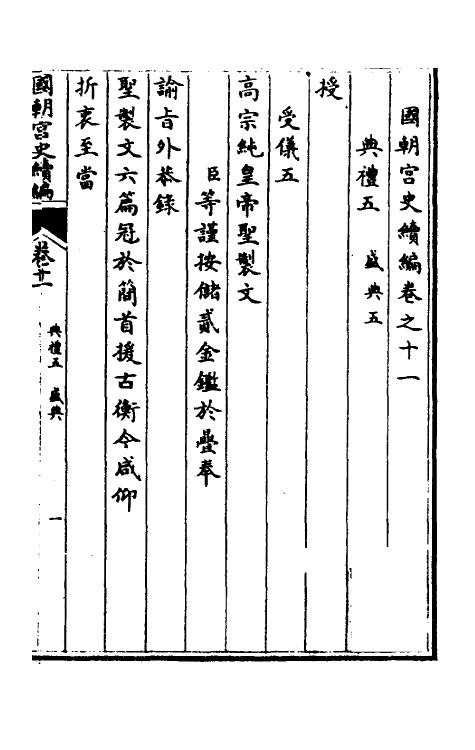 國朝宮史續編卷之十一
典禮五 盛典五
授
受儀五
高宗純皇帝聖製文
臣等謹按儲貳金鑑於疊奉
諭旨外恭錄
聖製文六篇冠於簡首援古衡今咸仰
折衷至當
國朝宮史續編 卷十一 典禮五 盛典 一